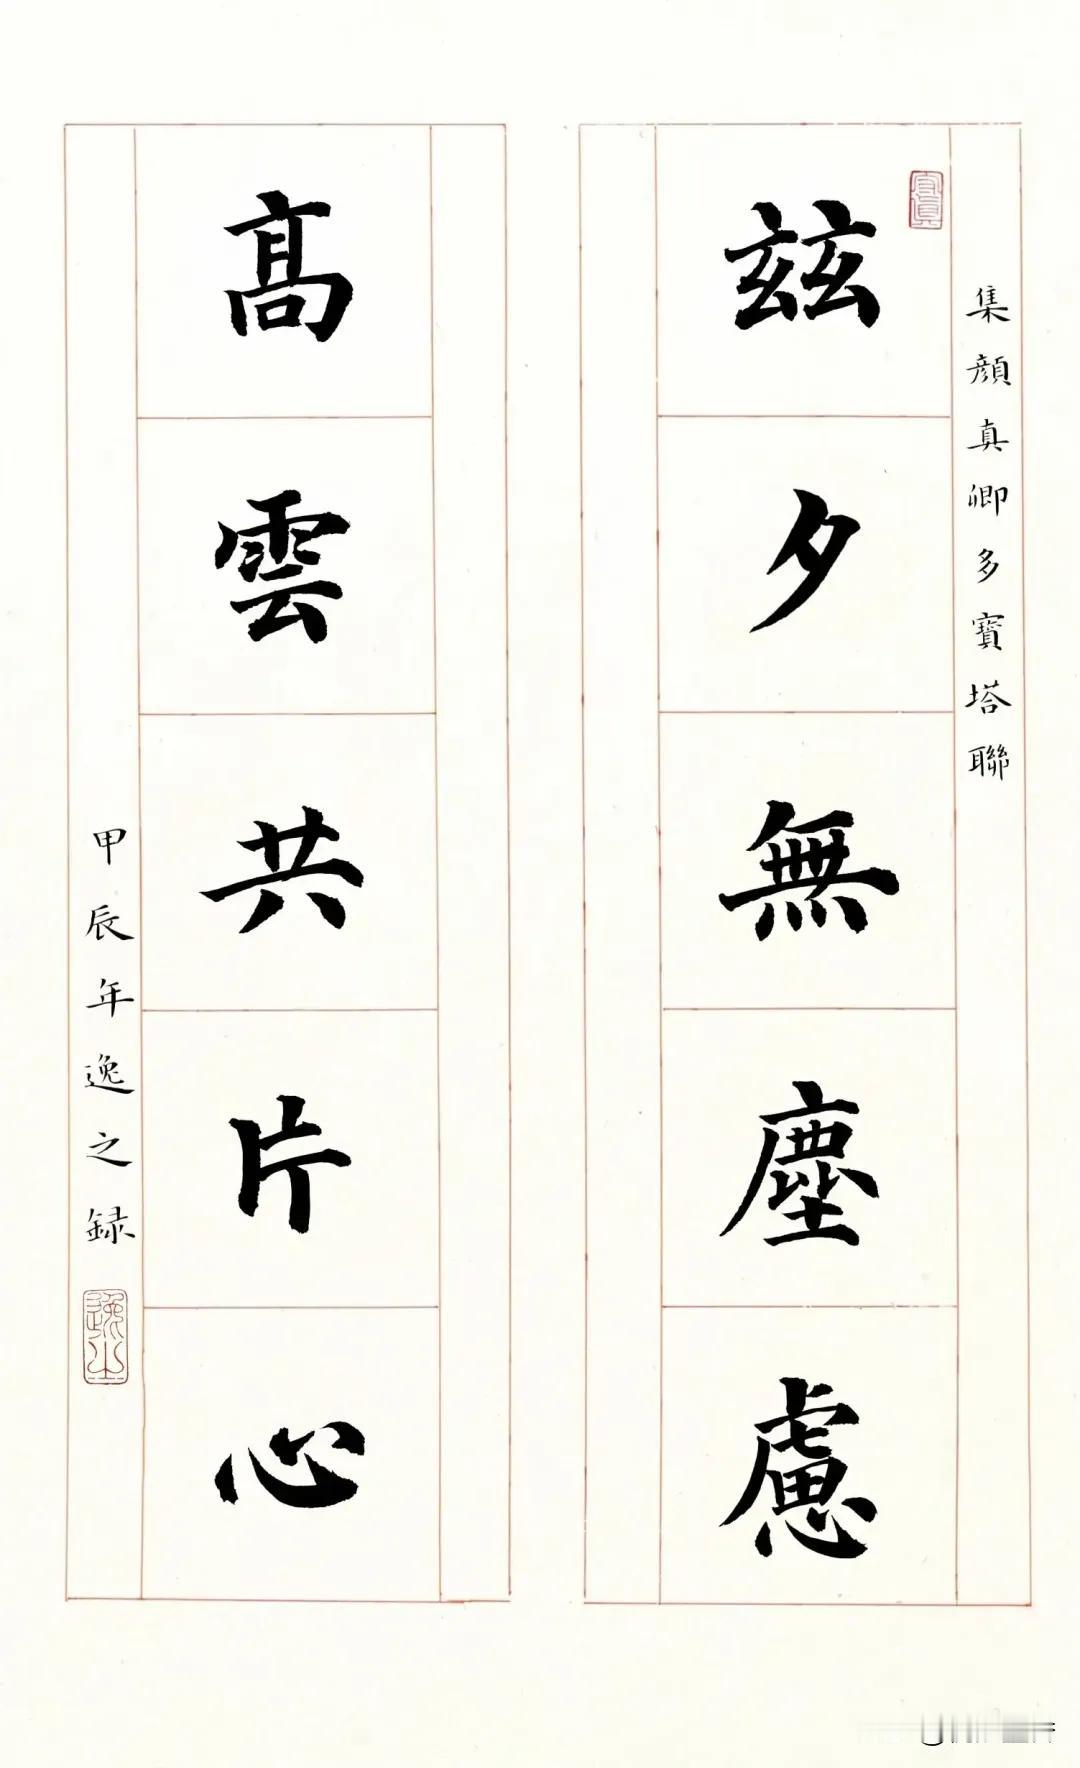 集顏真卿多寶塔聯
茲夕無塵慮
高雲共片心
甲辰年逸之録
逸之